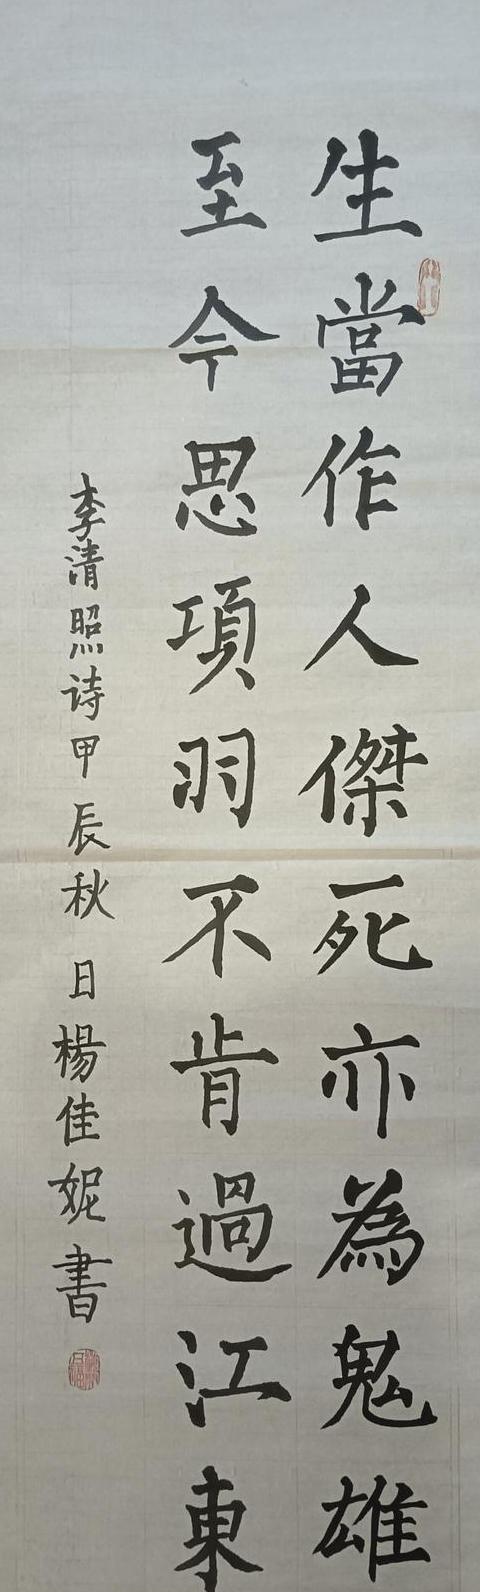 生當作人傑死亦為鬼雄
至今思項羽不肯過江東
李清照诗甲辰秋日楊佳妮書